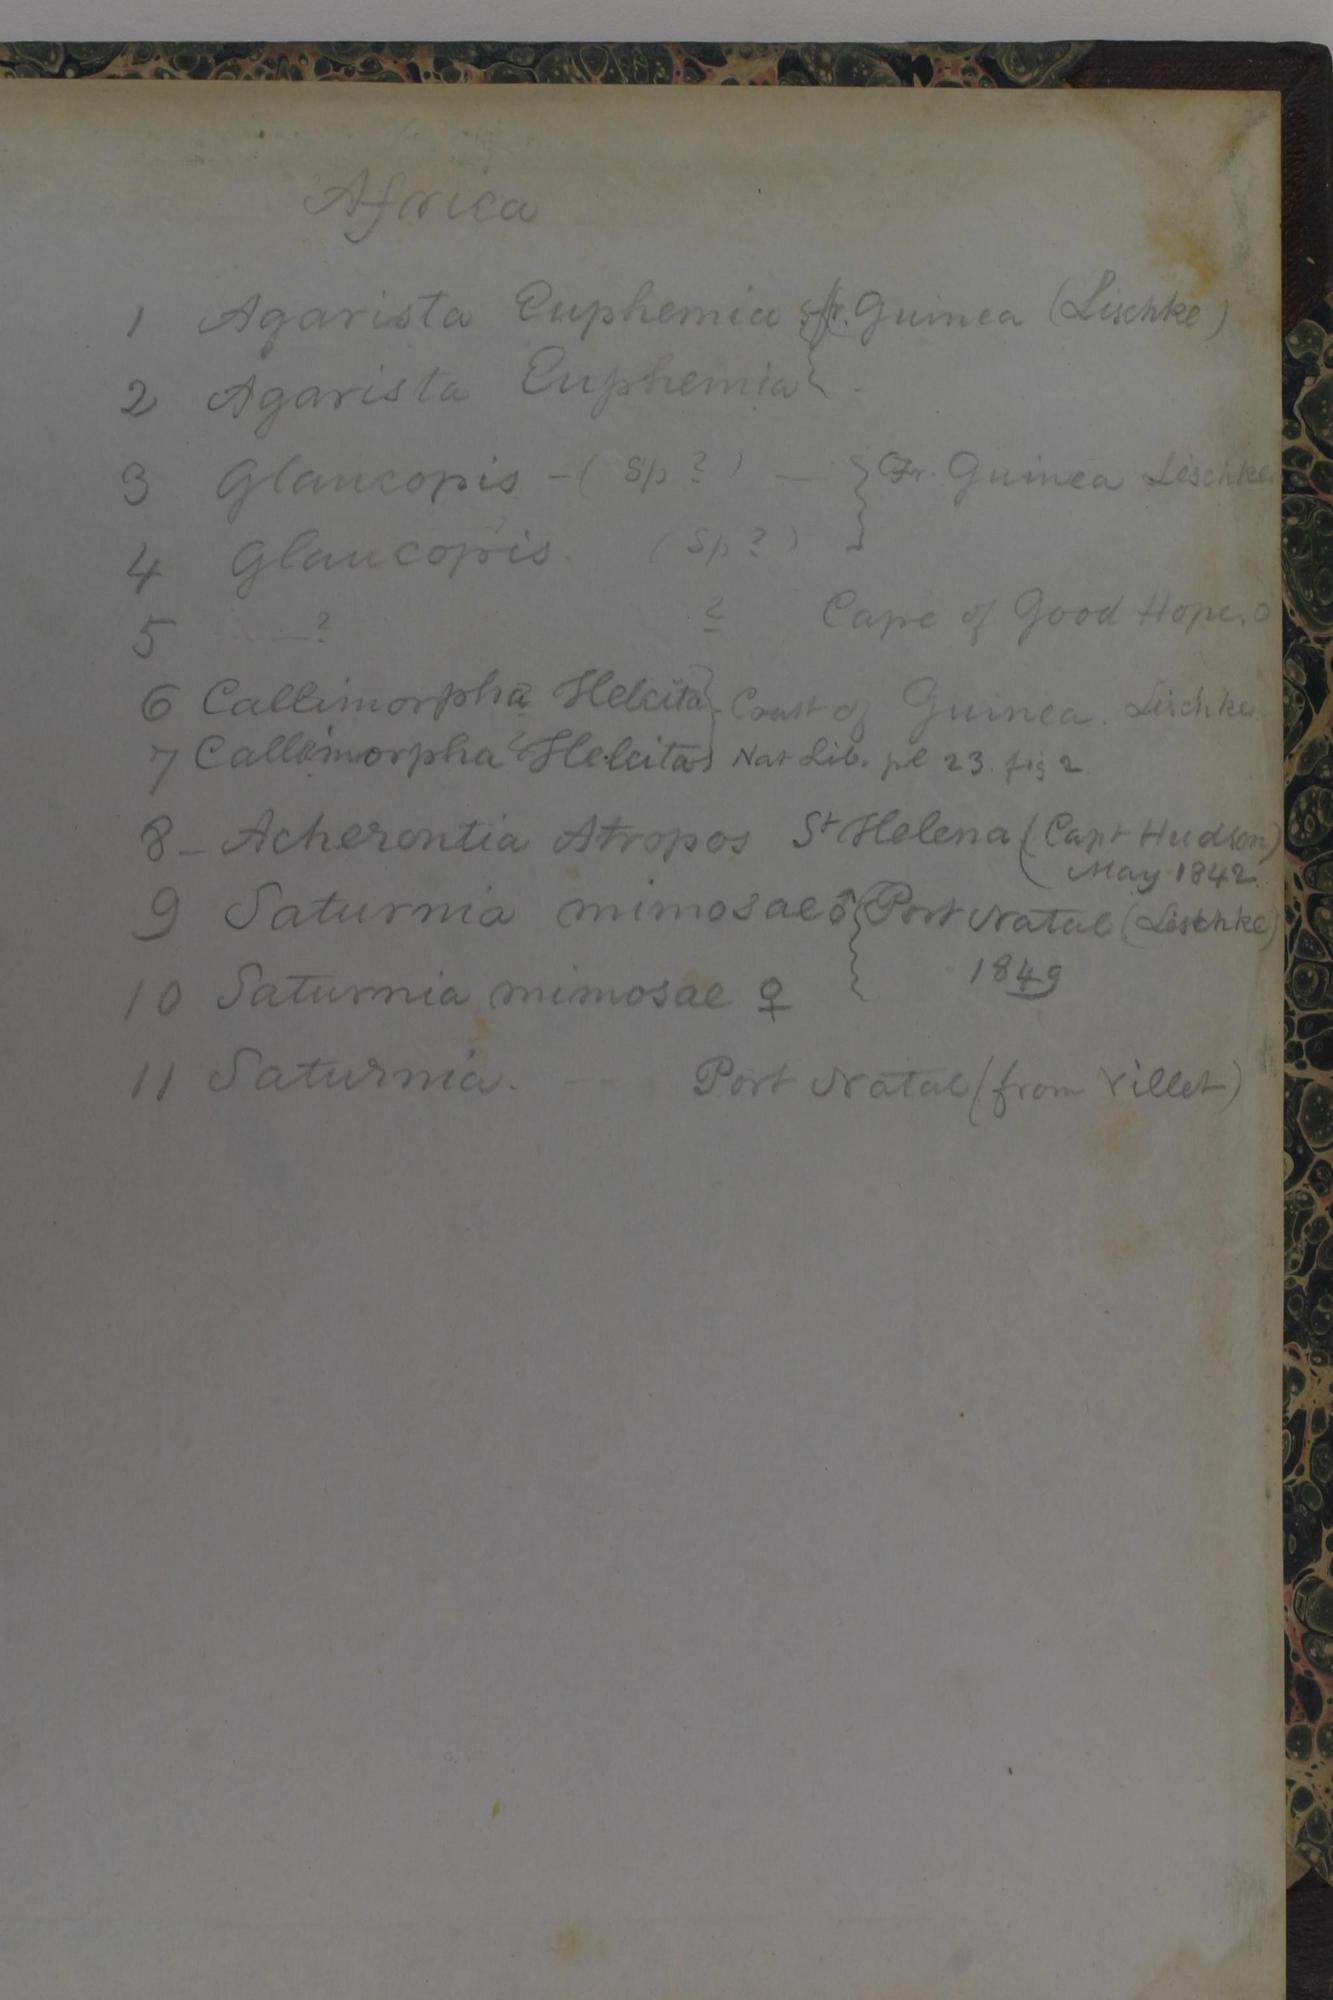 Africa
1 Agarista Euphemia fr. Guinea (Lischke)
2 Agarista Euphemia
3 Glaucopis - (Sp?) — Fr. Guinea Lischke
4 Glaucopis. (Sp?)
5 —? ? Cape of Good Hope.
6 Callimorpha Helcita Coast of Guinea. Lischke
7 Callimorpha Helcita Nat Lib. pl 23. fig 2
8 - Acherontia Atropos St Helena (Capt Hudson)
May 1842
9 Saturnia mimosae ♂ Port Natal (Lischke)
1849
10 Saturnia mimosae ♀
11 Saturnia. — Port Natal (from Villet)